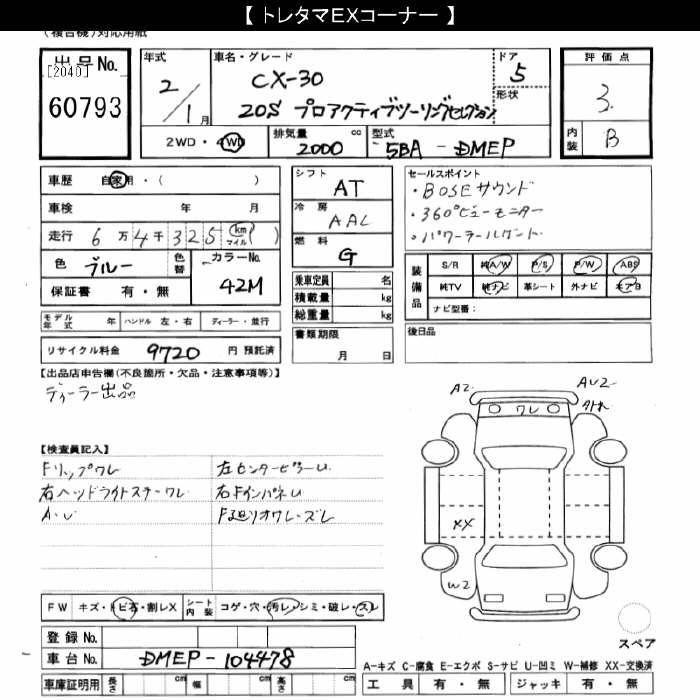 【 トレタマEXコーナー 】
(複合機)対応用紙
出品No.
[2040]
60793
年式
2/1月
車名・グレード
CX-30
20S プロアクティブツーリングセレクション
ドア
5
形状
評価点
3.
内装
B
2WD・4WD
排気量
2000 cc
型式
5BA-DMEP
車歴 自家用・( )
車検 年 月
走行 6万4千325 km マイル ( )
色 ブルー
色替
カラーNo.
42M
保証書 有・無
シフト
AT
冷房
AAC
燃料
G
乗車定員 名
積載量 kg
総重量 kg
セールスポイント
・BOSEサウンド
・360°ビューモニター
・パワーテールゲート
装備品
S/R 純A/W P/S P/W ABS
純TV 純ナビ 革シート 外ナビ エアB
ナビ型番:
モデル年式 年 ハンドル 左・右 ディーラー・並行
書類期限
月 日
後日品
リサイクル料金 9720 円 預託済
【出品店申告欄(不良箇所・欠品・注意事項等)】
ディーラー出品
【検査員記入】
Fリップワレ
右ヘッドライトステーワレ
A・U
左センターピラーU
右FインパネU
F廻りオワレ・ズレ
A2
AU2
ワレ
XX
W2
FW キズ・トビ石・割レX
シート内装 コゲ・穴・汚レ・シミ・破レ・スレ
登録No.
車台No. DMEP-104478
車庫証明用 長さ cm 幅 cm 高さ cm
スペア
A-キズ C-腐食 E-エクボ S-サビ U-凹ミ W-補修 XX-交換済
工具 有・無 ジャッキ 有・無